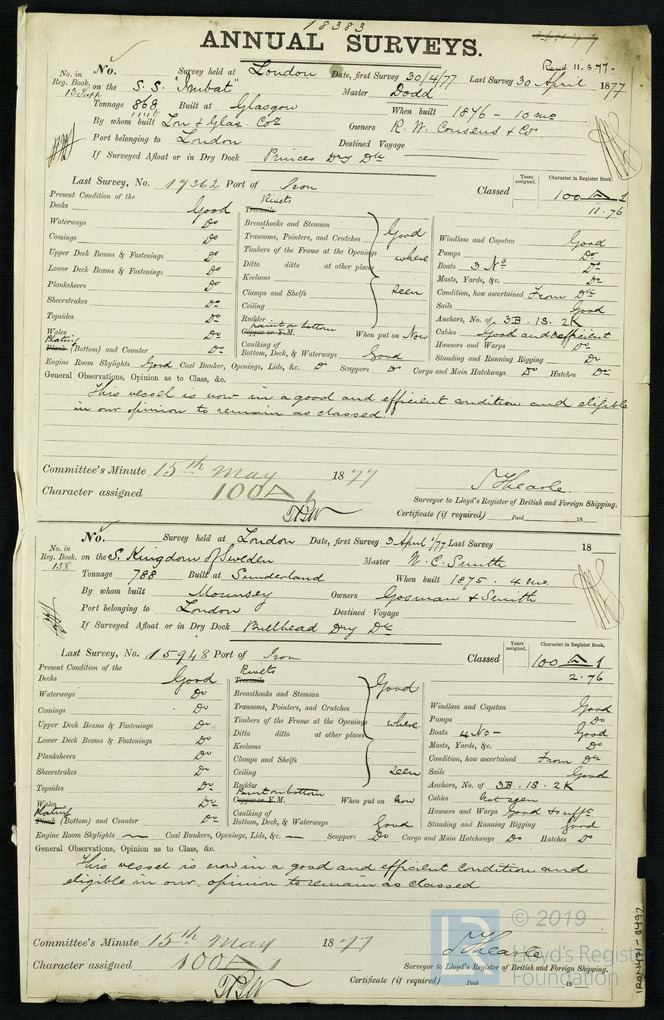 18383
ANNUAL SURVEYS.
Recd 11.5.77.
No. in Reg. Book. No. Survey held at London Date, first Survey 30/4/77 Last Survey 30 April 1877
13 Supp on the S.S. "Inbat" Master Dodd
Tonnage 868 Built at Glasgow When built 1876 - 10 mo
1146
By whom built Lon & Glas. Coy Owners R. W. Cousens & Co
Port belonging to London Destined Voyage
If Surveyed Afloat or in Dry Dock Princes Dry Dk
Last Survey, No. 17362 Port of Iron Classed Years assigned. Character in Register Book. 100 A 1
11.76
Present Condition of the
Decks Good
Waterways Do
Comings Do
Upper Deck Beams & Fastenings Do
Lower Deck Beams & Fastenings Do
Planksheers Do
Sheerstrakes Do
Topsides Do
Wales Do
Plating
Plank (Bottom) and Counter Do
Rivets
Treenails
Breasthooks and Stemson
Transoms, Pointers, and Crutches
Timbers of the Frame at the Openings
Ditto ditto at other places
Keelsons
Clamps and Shelfs
Ceiling
Rudder
Good where seen
paint on bottom
Copper or Y.M. When put on Now
Caulking of
Bottom, Deck, & Waterways Good
Windlass and Capstan Good
Pumps Do
Boats 3 No Do
Masts, Yards, &c. Do
Condition, how ascertained From Dk
Sails Good
Anchors, No. of 3B. 1S. 2K
Cables Good and efficient
Hawsers and Warps Do
Standing and Running Rigging Do
Engine Room Skylights Good Coal Bunker, Openings, Lids, &c. Do Scuppers Do Cargo and Main Hatchways Do Hatches Do
General Observations, Opinion as to Class, &c.
This vessel is now in a good and efficient condition and eligible
in our opinion to remain as classed.
Committee's Minute 15th May 1877
Character assigned 100 A 1
Surveyor to Lloyd's Register of British and Foreign Shipping.
Certificate (if required) Paid 18
No. in Reg. Book. No. Survey held at London Date, first Survey 3 April '77 Last Survey 18
158 on the S. Kingdom of Sweden Master W. C. Smith
Tonnage 788 Built at Sunderland When built 1875. 4 mo.
By whom built Mounsey Owners Gosman & Smith
Port belonging to London Destined Voyage
If Surveyed Afloat or in Dry Dock Bullhead Dry Dk
Last Survey, No. 15948 Port of Iron Classed Years assigned. Character in Register Book. 100 A 1
2.76
Present Condition of the
Decks Good
Waterways Do
Comings Do
Upper Deck Beams & Fastenings Do
Lower Deck Beams & Fastenings Do
Planksheers Do
Sheerstrakes Do
Topsides Do
Wales Do
Plating
Plank (Bottom) and Counter Do
Rivets
Treenails
Breasthooks and Stemson
Transoms, Pointers, and Crutches
Timbers of the Frame at the Openings
Ditto ditto at other places
Keelsons
Clamps and Shelfs
Ceiling
Rudder
Good where seen
Paint on bottom
Copper or Y.M. When put on now
Caulking of
Bottom, Deck, & Waterways Good
Windlass and Capstan Good
Pumps Do
Boats 4 No - Good
Masts, Yards, &c. Do
Condition, how ascertained From Dk
Sails Good
Anchors, No. of 3B. 1S. 2K
Cables Not seen
Hawsers and Warps Good & sufft
Standing and Running Rigging Good
Engine Room Skylights — Coal Bunkers, Openings, Lids, &c. — Scuppers Do Cargo and Main Hatchways Do Hatches Do
General Observations, Opinion as to Class, &c.
This vessel is now in a good and efficient condition and
eligible in our opinion to remain as classed
Committee's Minute 15th May 1877
Character assigned 100 A 1
Surveyor to Lloyd's Register of British and Foreign Shipping.
Certificate (if required) Paid 18
© 2019
Lloyd's Register
Foundation
IRON471-0497